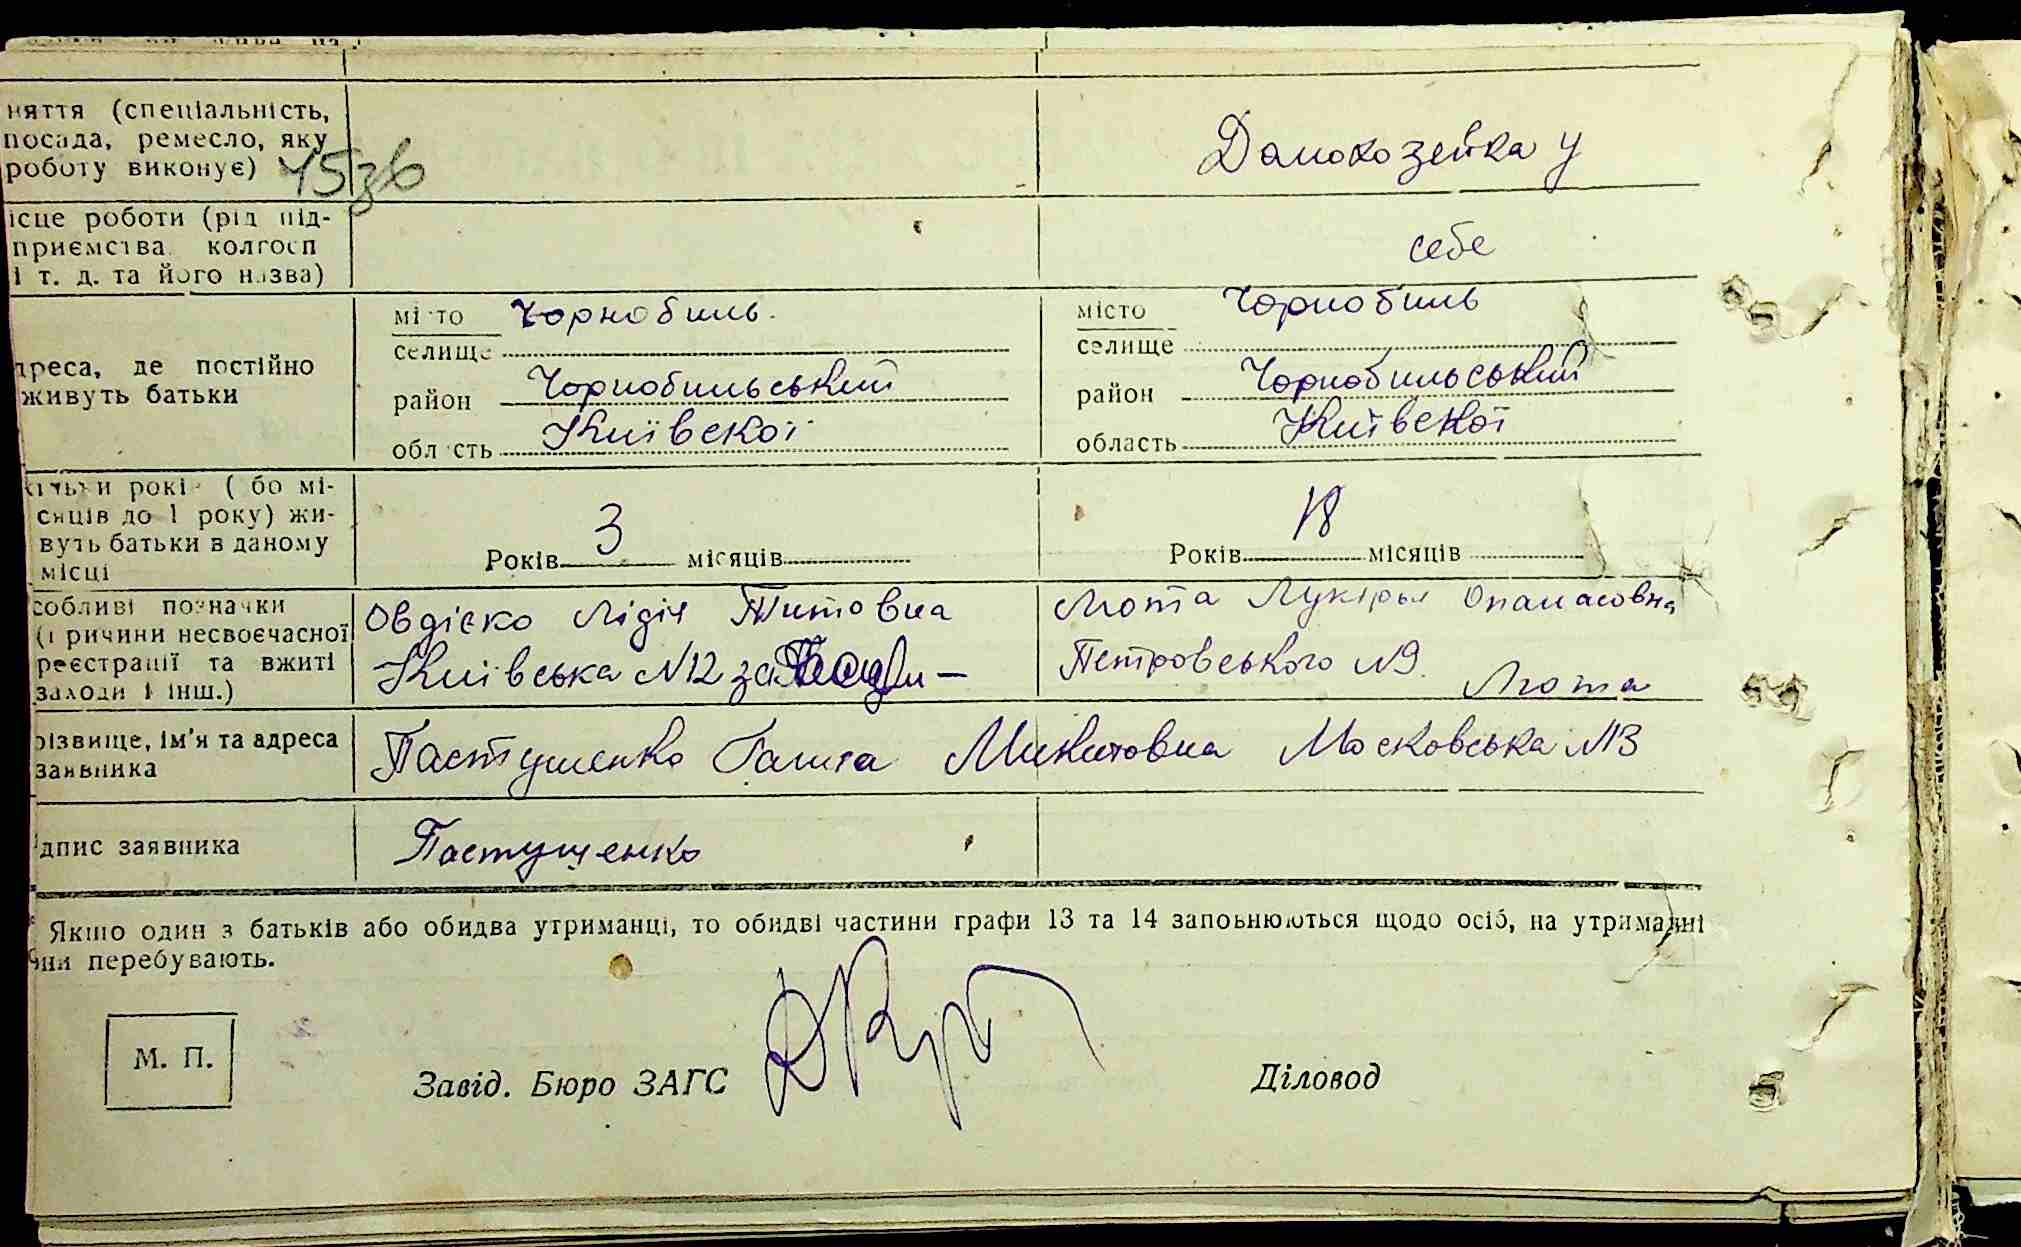 няття (спеціальність,
посада, ремесло, яку
роботу виконує)
Домохозейка у
ісце роботи (рід під-
приємства колгосп
і т. д. та його назва)
себе
дреса, де постійно
живуть батьки
місто Чорнобиль.
селище
район Чорнобильський
область Київскої
місто Чорнобиль
селище
район Чорнобильський
область Київскої
кільки років (або мі-
сяців до 1 року) жи-
вуть батьки в даному
місці
Років 3 місяців
Років 18 місяців
собливі позначки
(причини несвоєчасної
реєстрації та вжиті
заходи і інш.)
Овдієко Лідія Титовна
Київська №12 за
Люта Лукірья Опанасовна
Петровського №9. Люта
різвище, ім'я та адреса
заявника
Пастушенко Ганна Микитовна Московська №13
дпис заявника
Пастущенко
Якщо один з батьків або обидва утриманці, то обидві частини графи 13 та 14 заповнюються щодо осіб, на утриманні
они перебувають.
М. П.
Завід. Бюро ЗАГС
Діловод